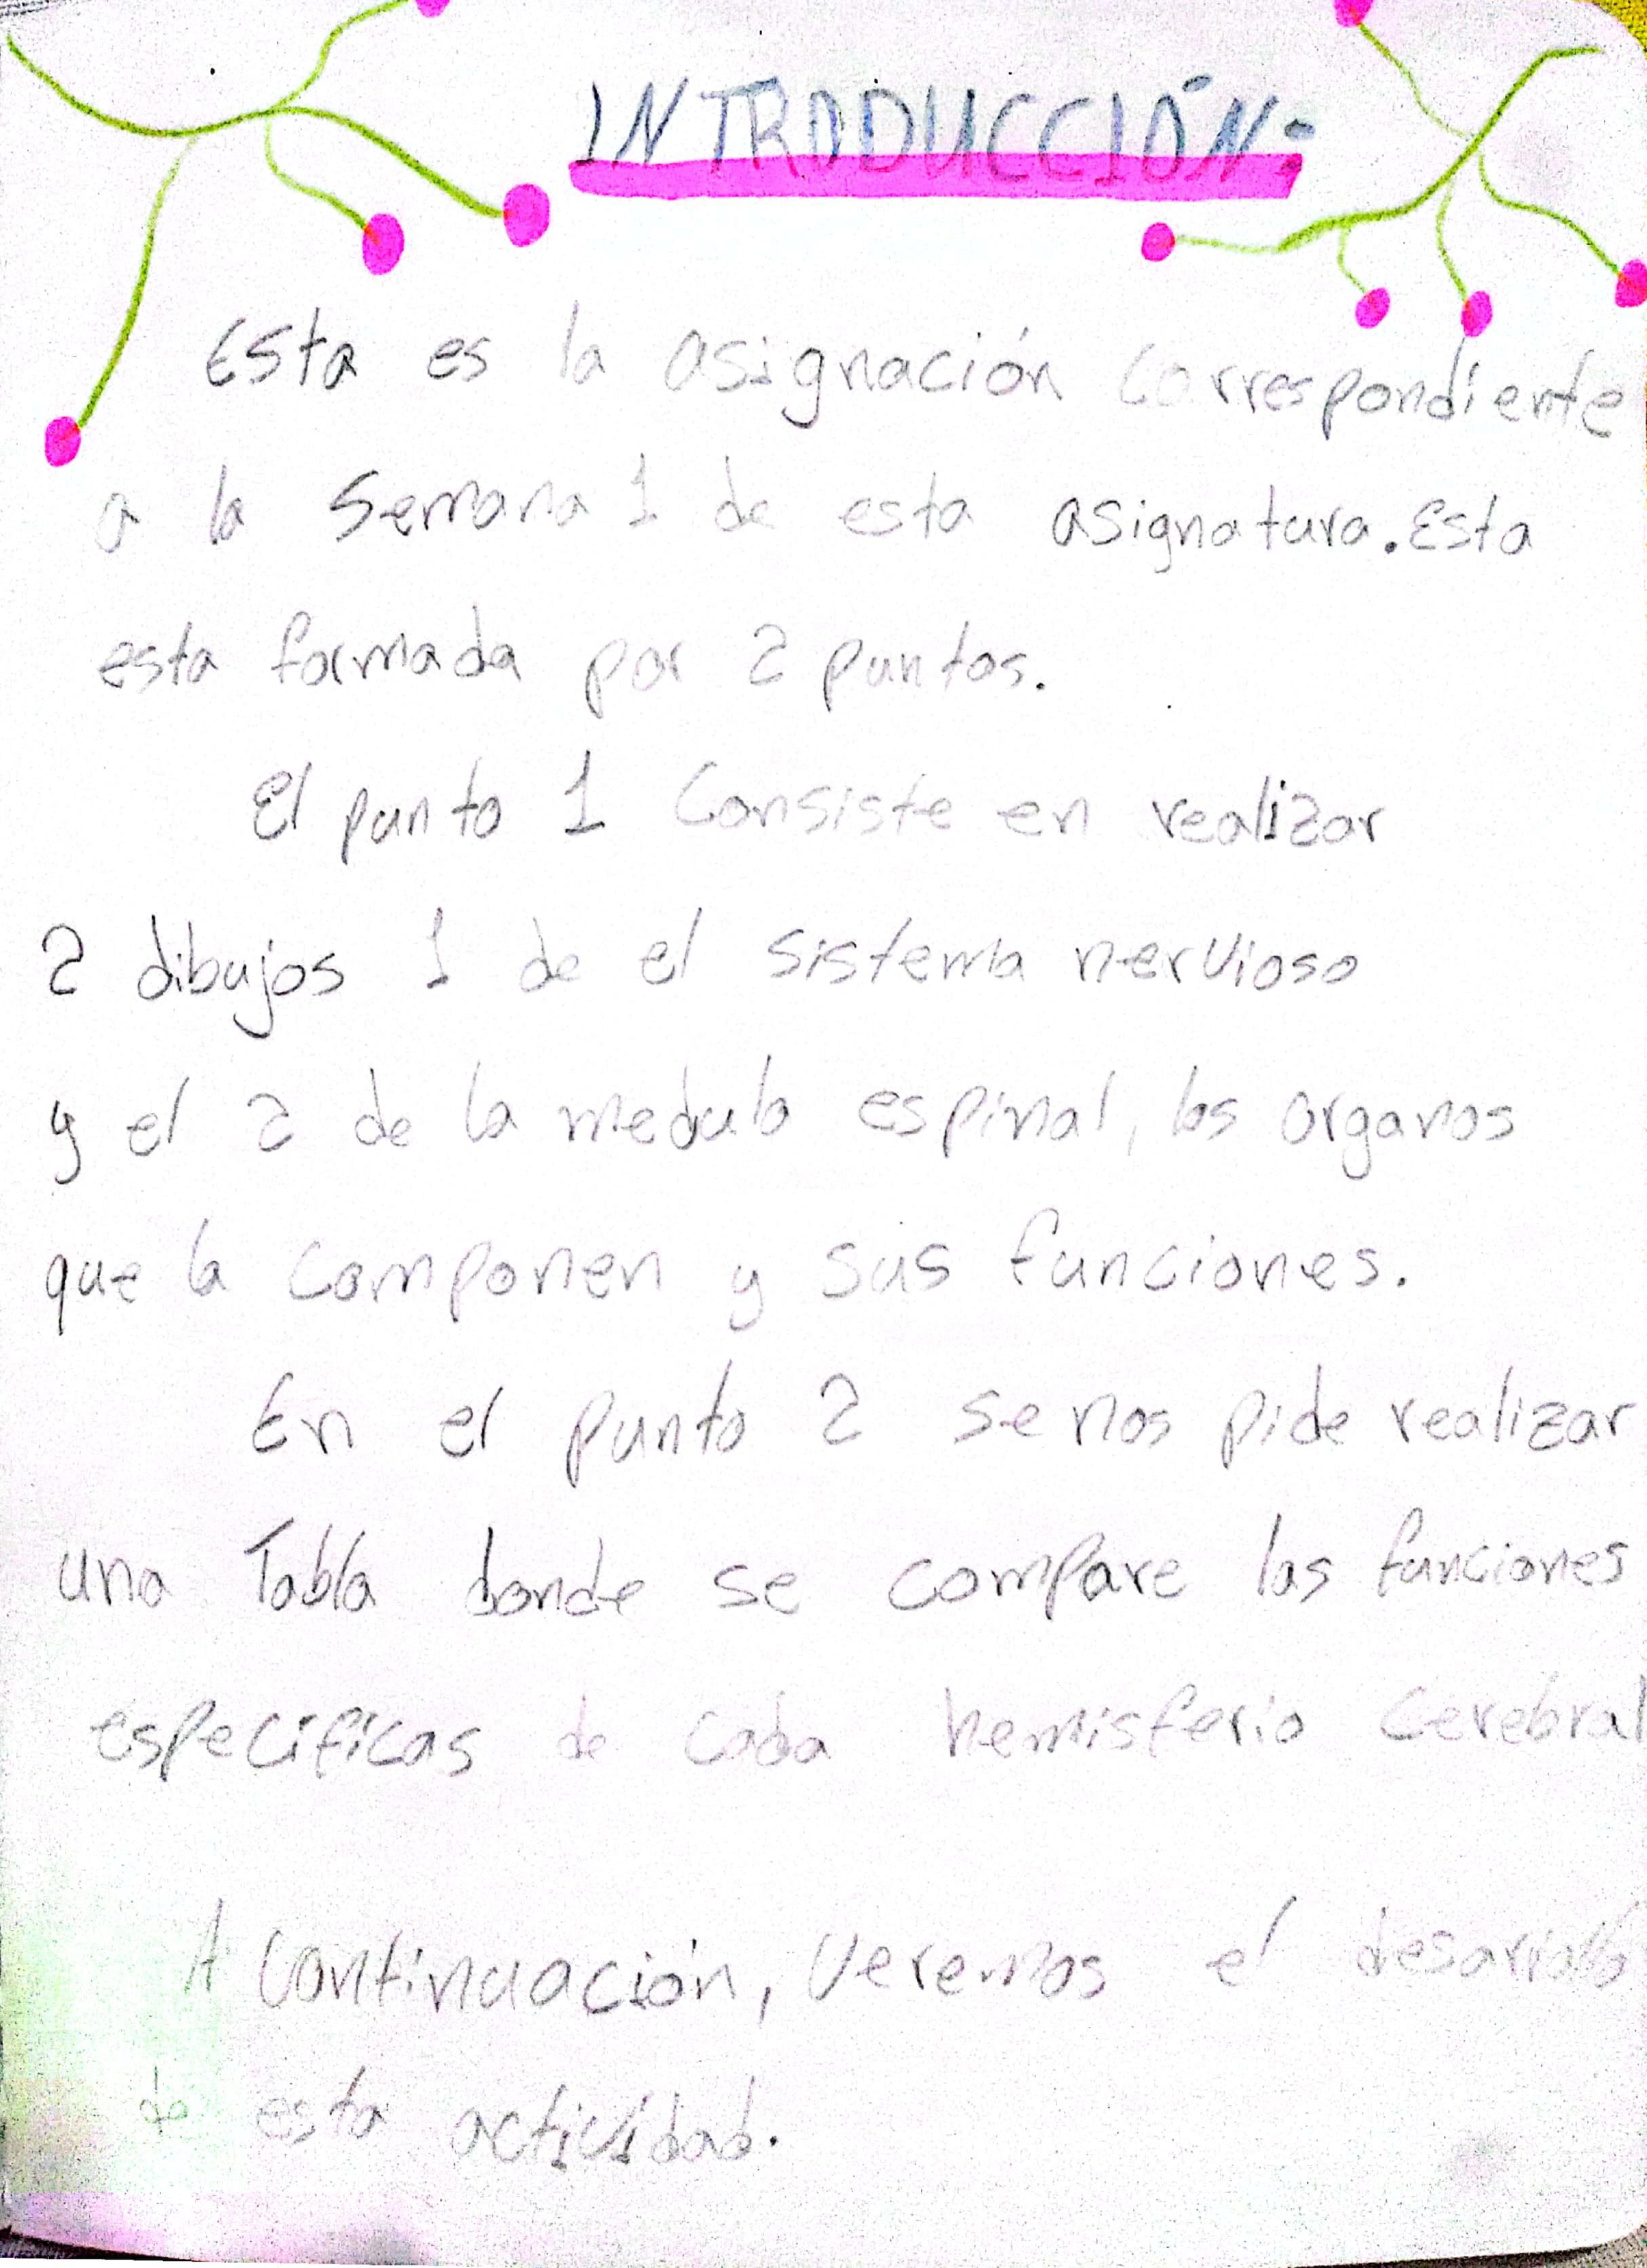 INTRODUCCIÓN:
Esta es la asignación correspondiente
a la Semana 1 de esta asignatura. Esta
esta formada por 2 puntos.
El punto 1 Consiste en realizar
2 dibujos 1 de el sistema nervioso
y el 2 de la medula espinal, los organos
que la componen y sus funciones.
En el punto 2 se nos pide realizar
una Tabla donde se compare las funciones
especificas de cada hemisferio cerebral
A continuación, veremos el desarrollo
de esta actividad.